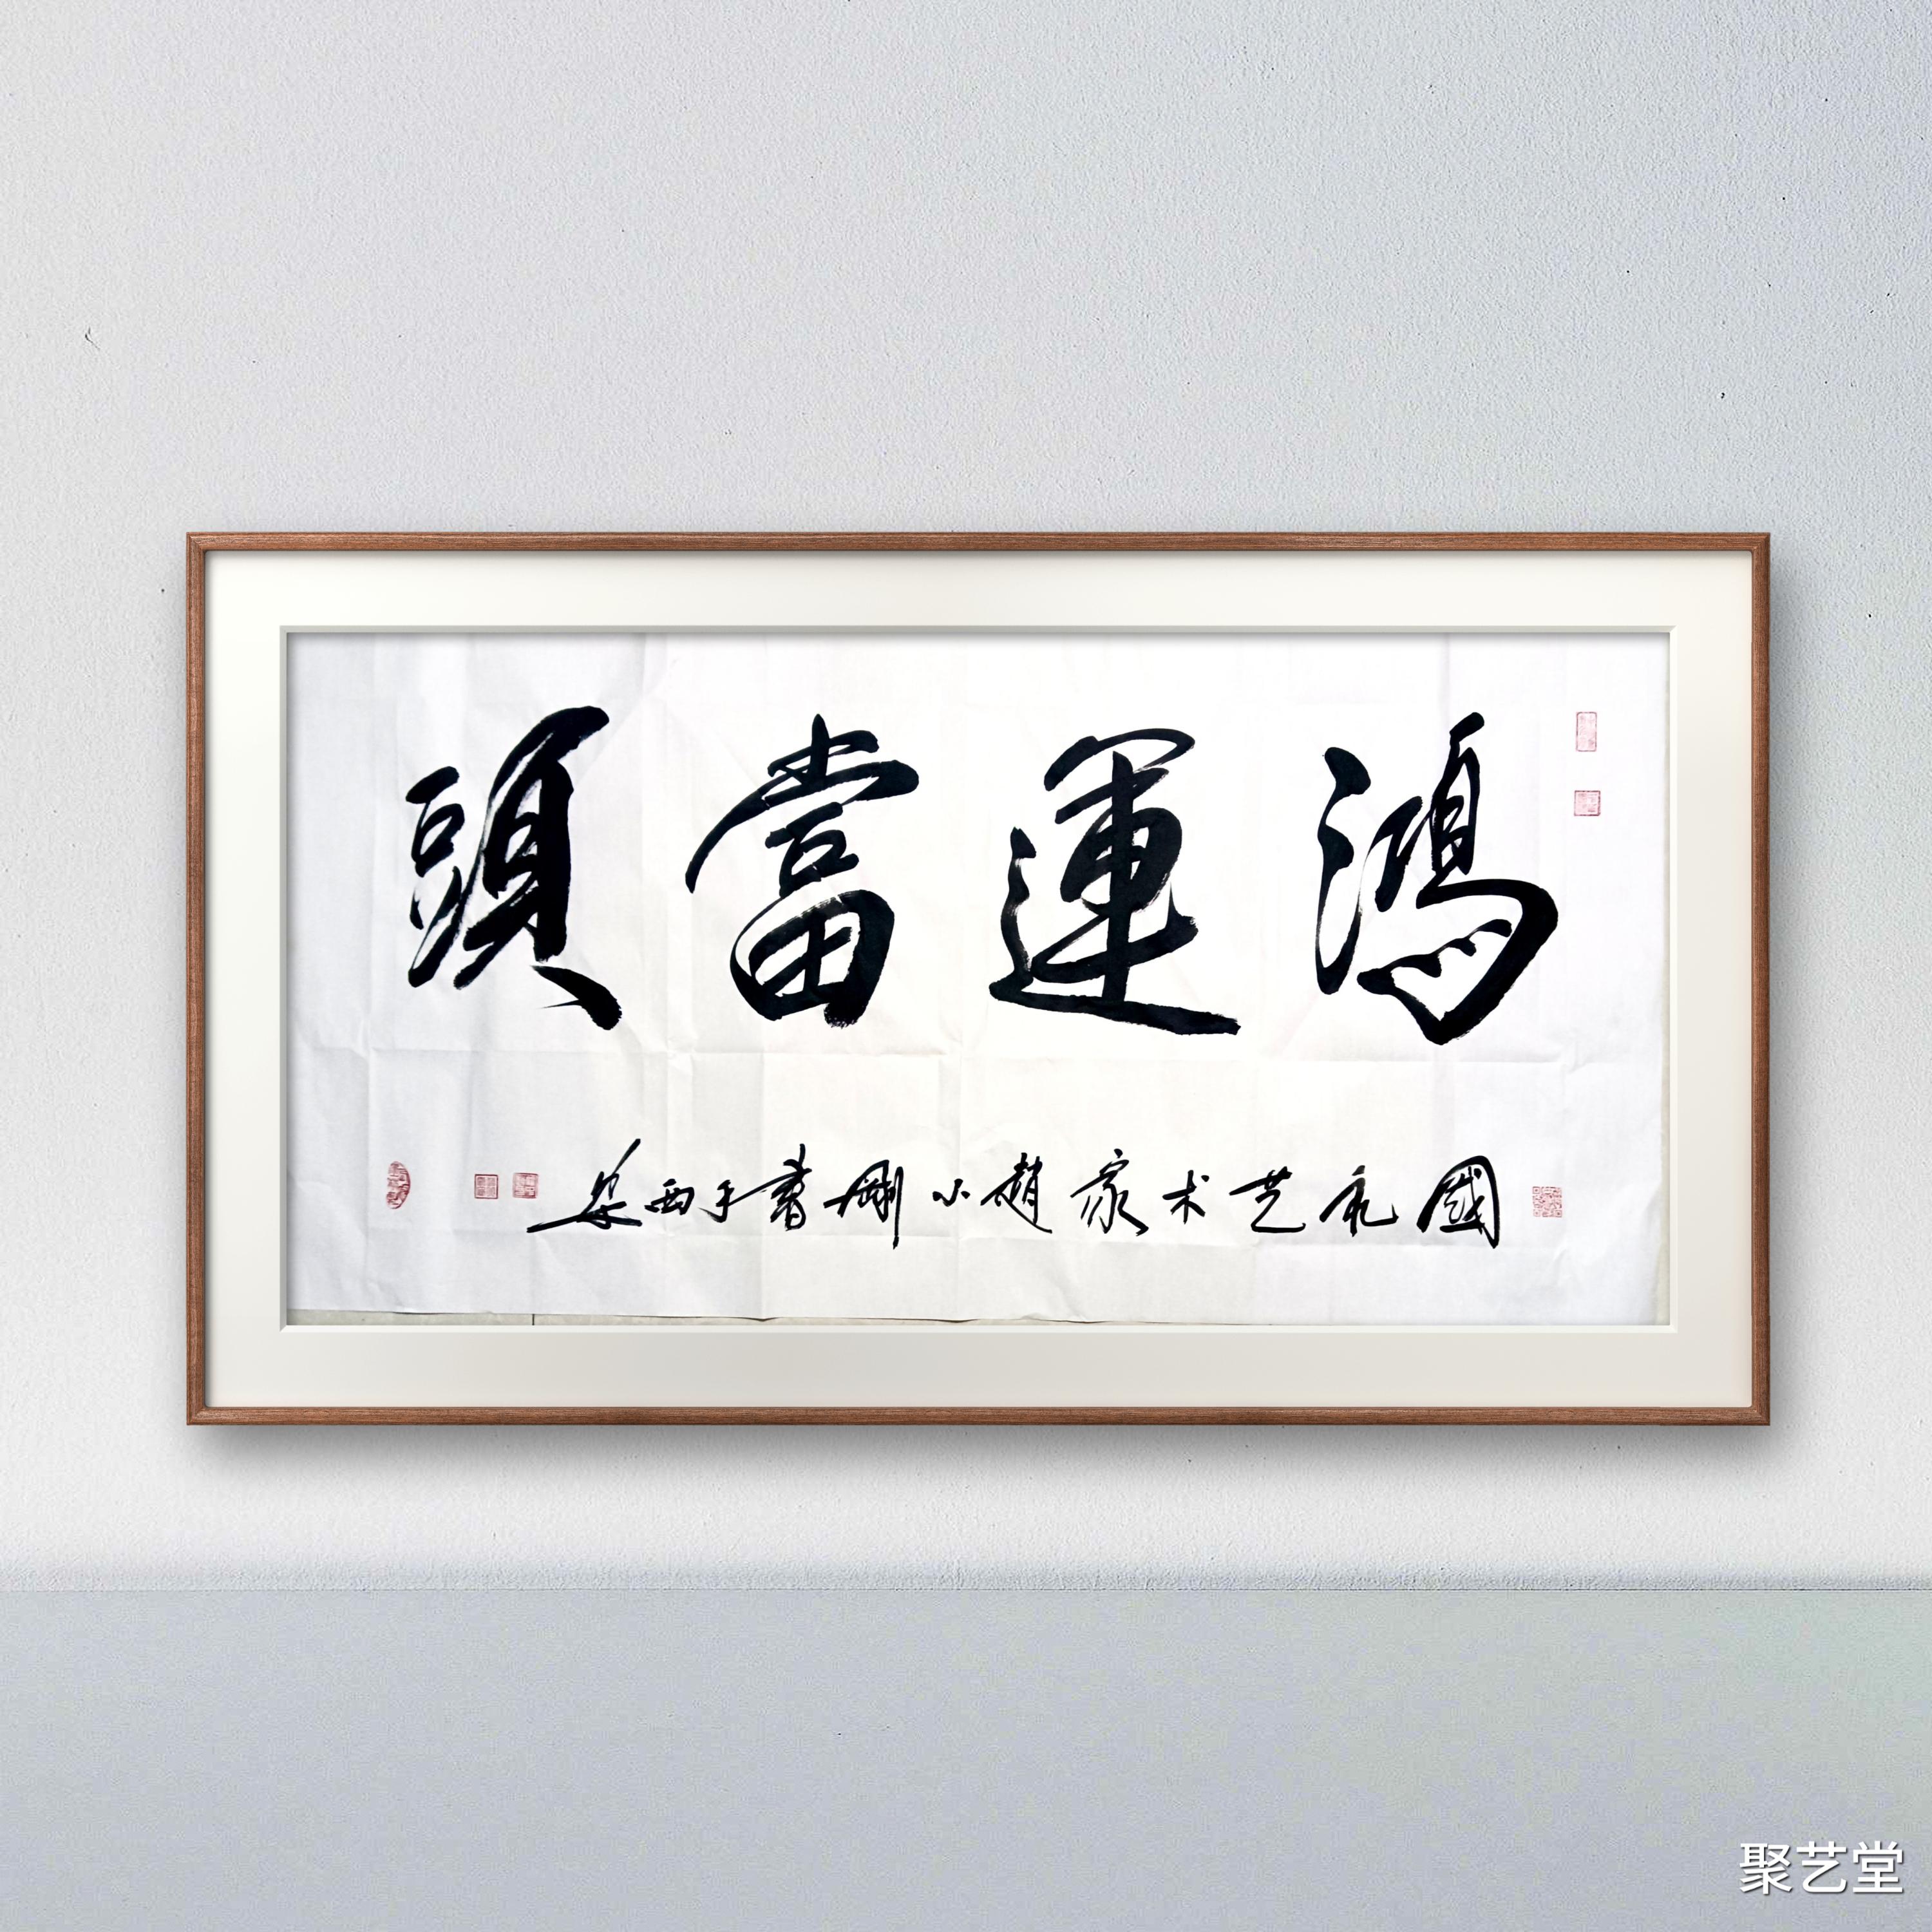 鴻運當頭
國礼艺术家趙小剛書于西安
聚艺堂